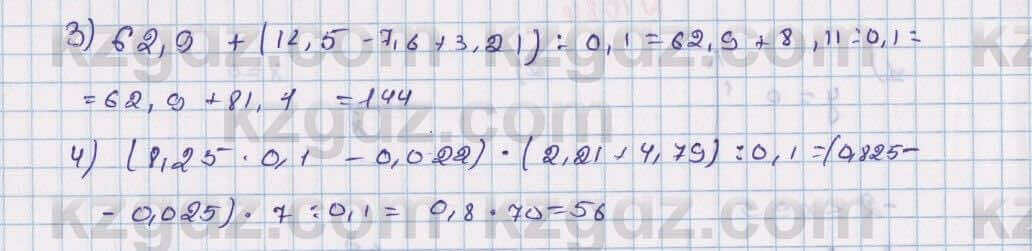 3) 62,9 + (12,5 - 7,6 + 3,21) : 0,1 = 62,9 + 8,11 : 0,1 =
= 62,9 + 81,1 = 144
4) (8,25 · 0,1 - 0,022) · (2,21 + 4,79) : 0,1 = (0,825 -
- 0,025) · 7 : 0,1 = 0,8 · 70 = 56
kzgdz.com